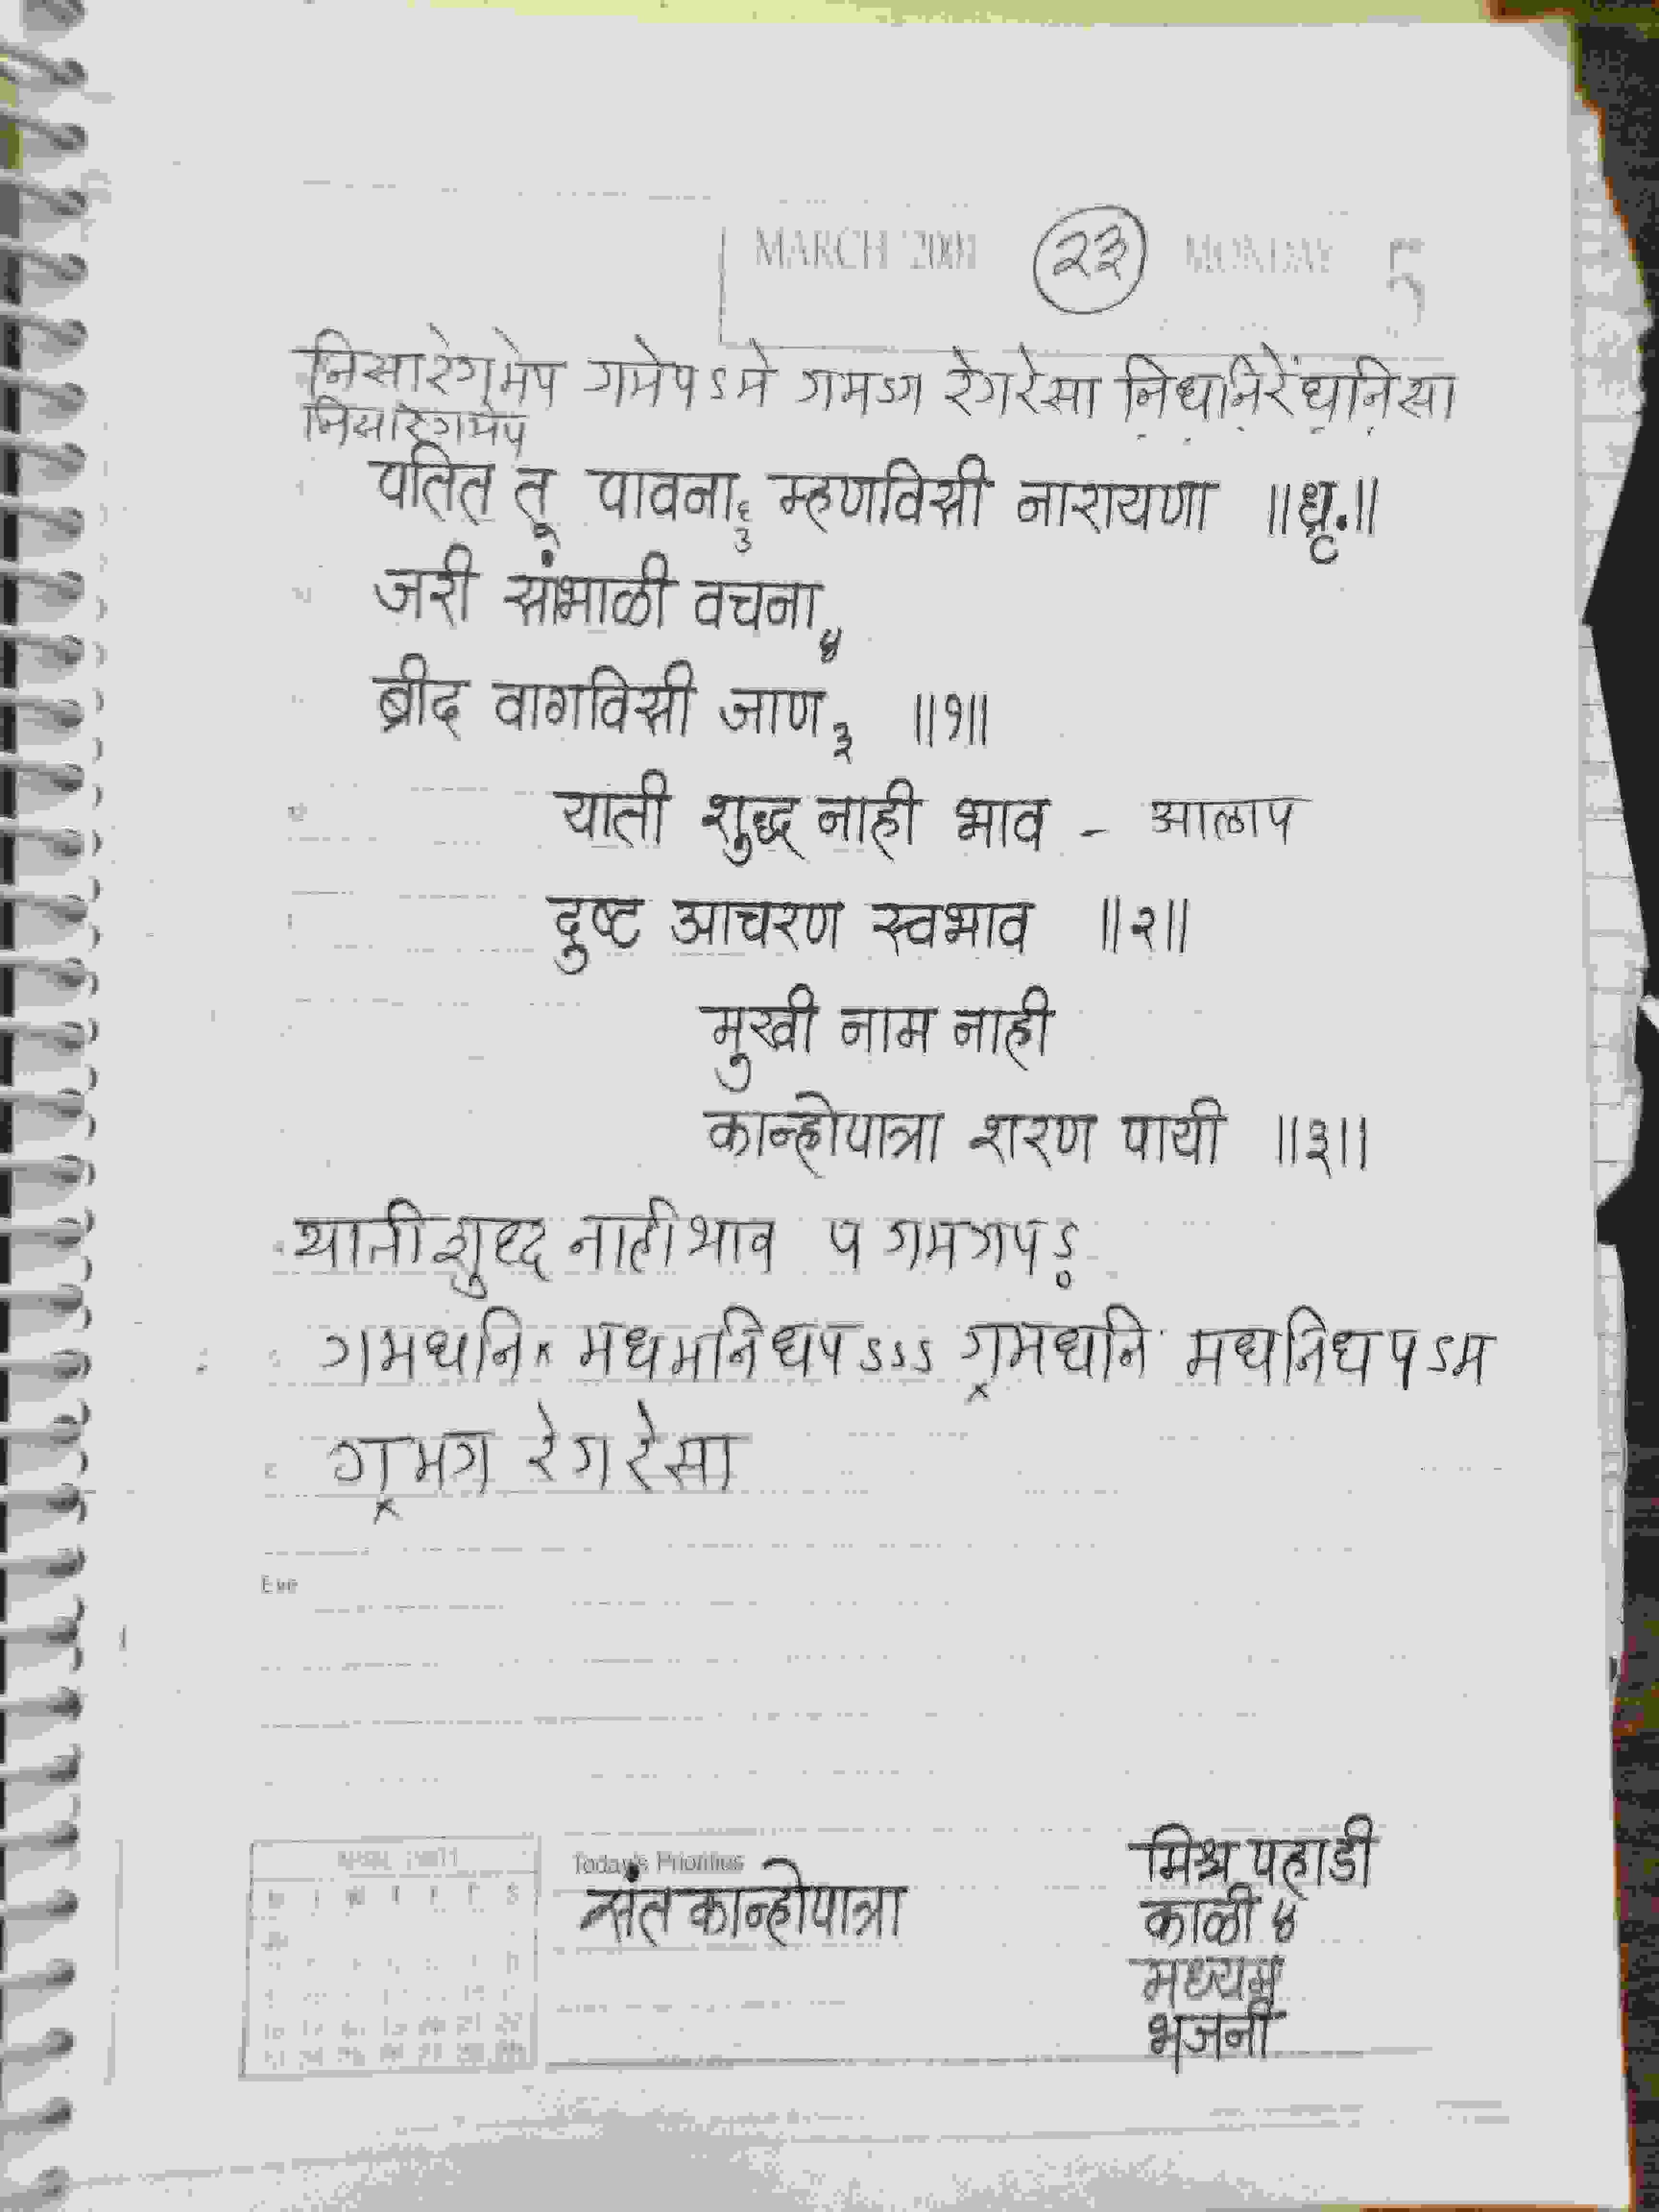 MARCH 2001 २३ MONDAY 5
निसारेगमेप गमेपऽमे गमऽग रेगरेसा निधनिरेंधनिसा
निसारेगमेप
पतित तू पावना६ म्हणविसी नारायणा ॥धृ.॥
जरी सांभाळी वचना४
ब्रीद वागविसी जाण३ ॥१॥
याती शुद्ध नाही भाव - आलाप
दुष्ट आचरण स्वभाव ॥२॥
मुखी नाम नाही
कान्होपात्रा शरण पायी ॥३॥
याती शुध्द नाही भाव प गमगपऽ
गमधनि× मधमनिधपऽऽऽ गमधनि मधनिधपऽम
गमग रेगरेसा
Eve
Today's Priorities
मिश्र पहाडी
संत कान्होपात्रा
काळी ४
मध्यम
भजनी